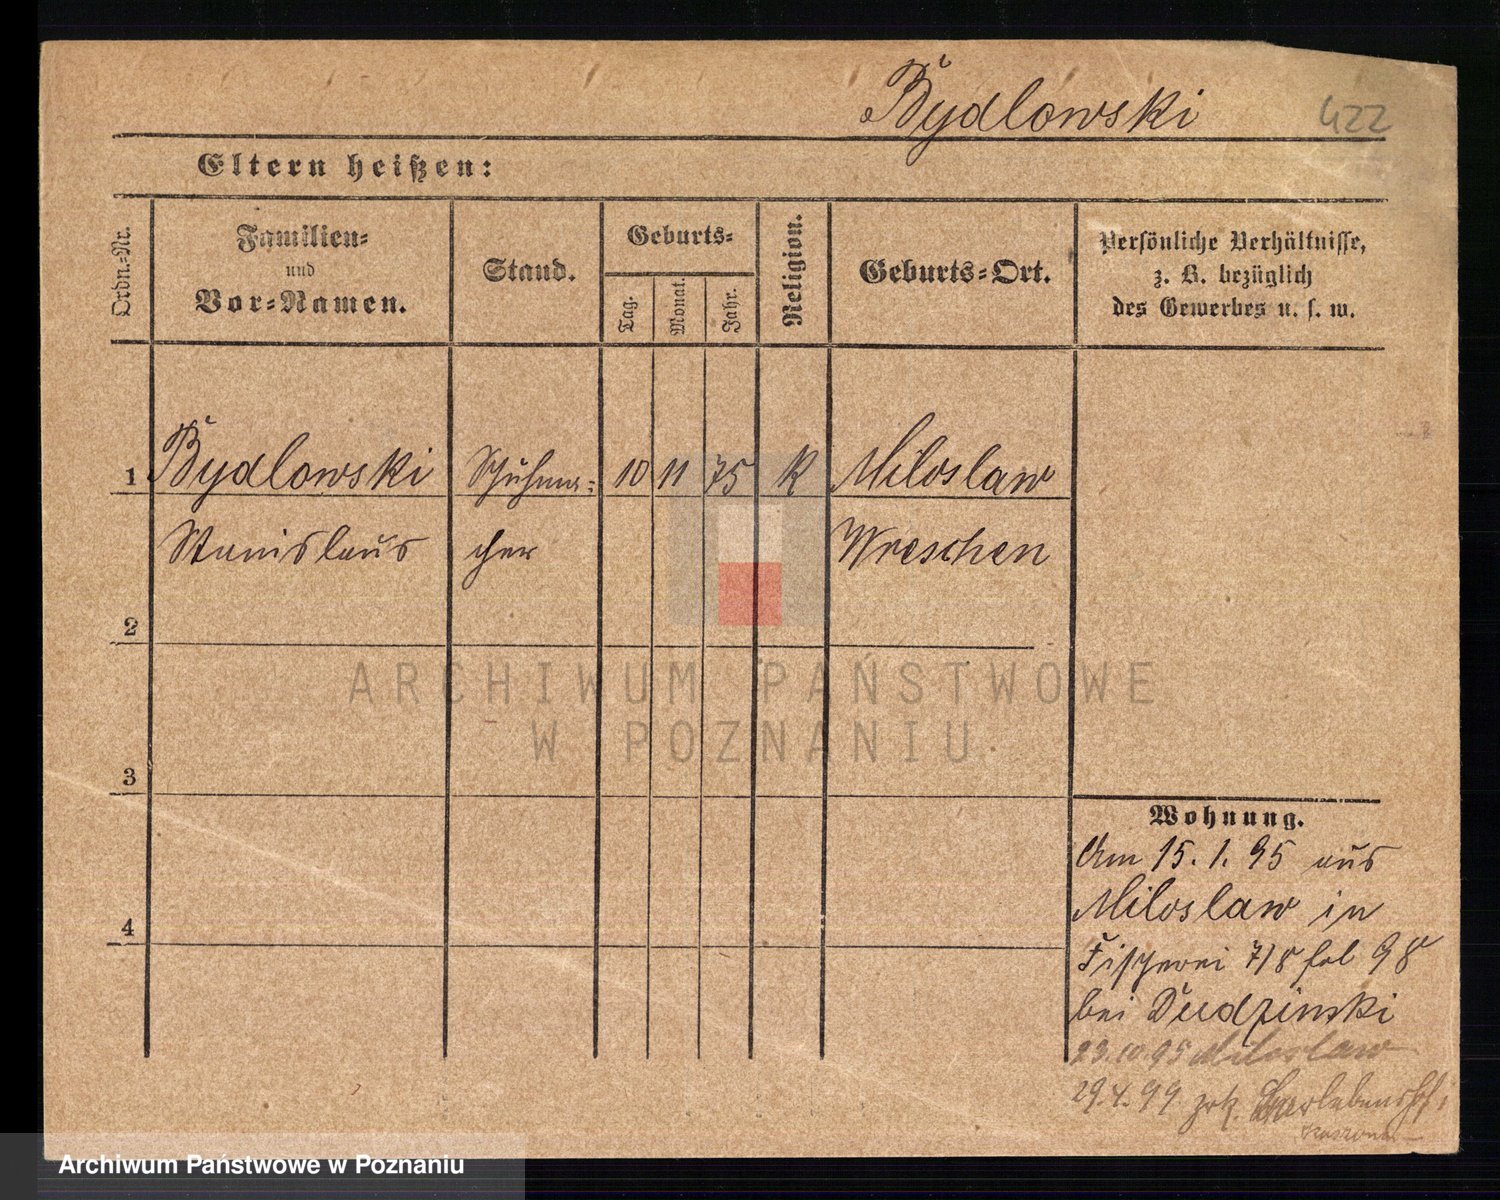 Bydlowski 422
Eltern heißen:
Ordn.-Nr.
Familien-
und
Vor-Namen.
Stand.
Geburts-
Tag.
Monat.
Jahr.
Religion.
Geburts-Ort.
Persönliche Verhältnisse,
z. B. bezüglich
des Gewerbes u. s. w.
1 Bydlowski Schuhma- 10 11 75 K Miloslaw
Stanislaus cher Wreschen
2
3
4
Wohnung.
Am 15. 1. 95 aus
Miloslaw in
Fischerei 7/8 fol 98
bei Dudzinski
23.10.95 Miloslaw
29.4.99
ARCHIWUM PAŃSTWOWE
W POZNANIU
Archiwum Państwowe w Poznaniu